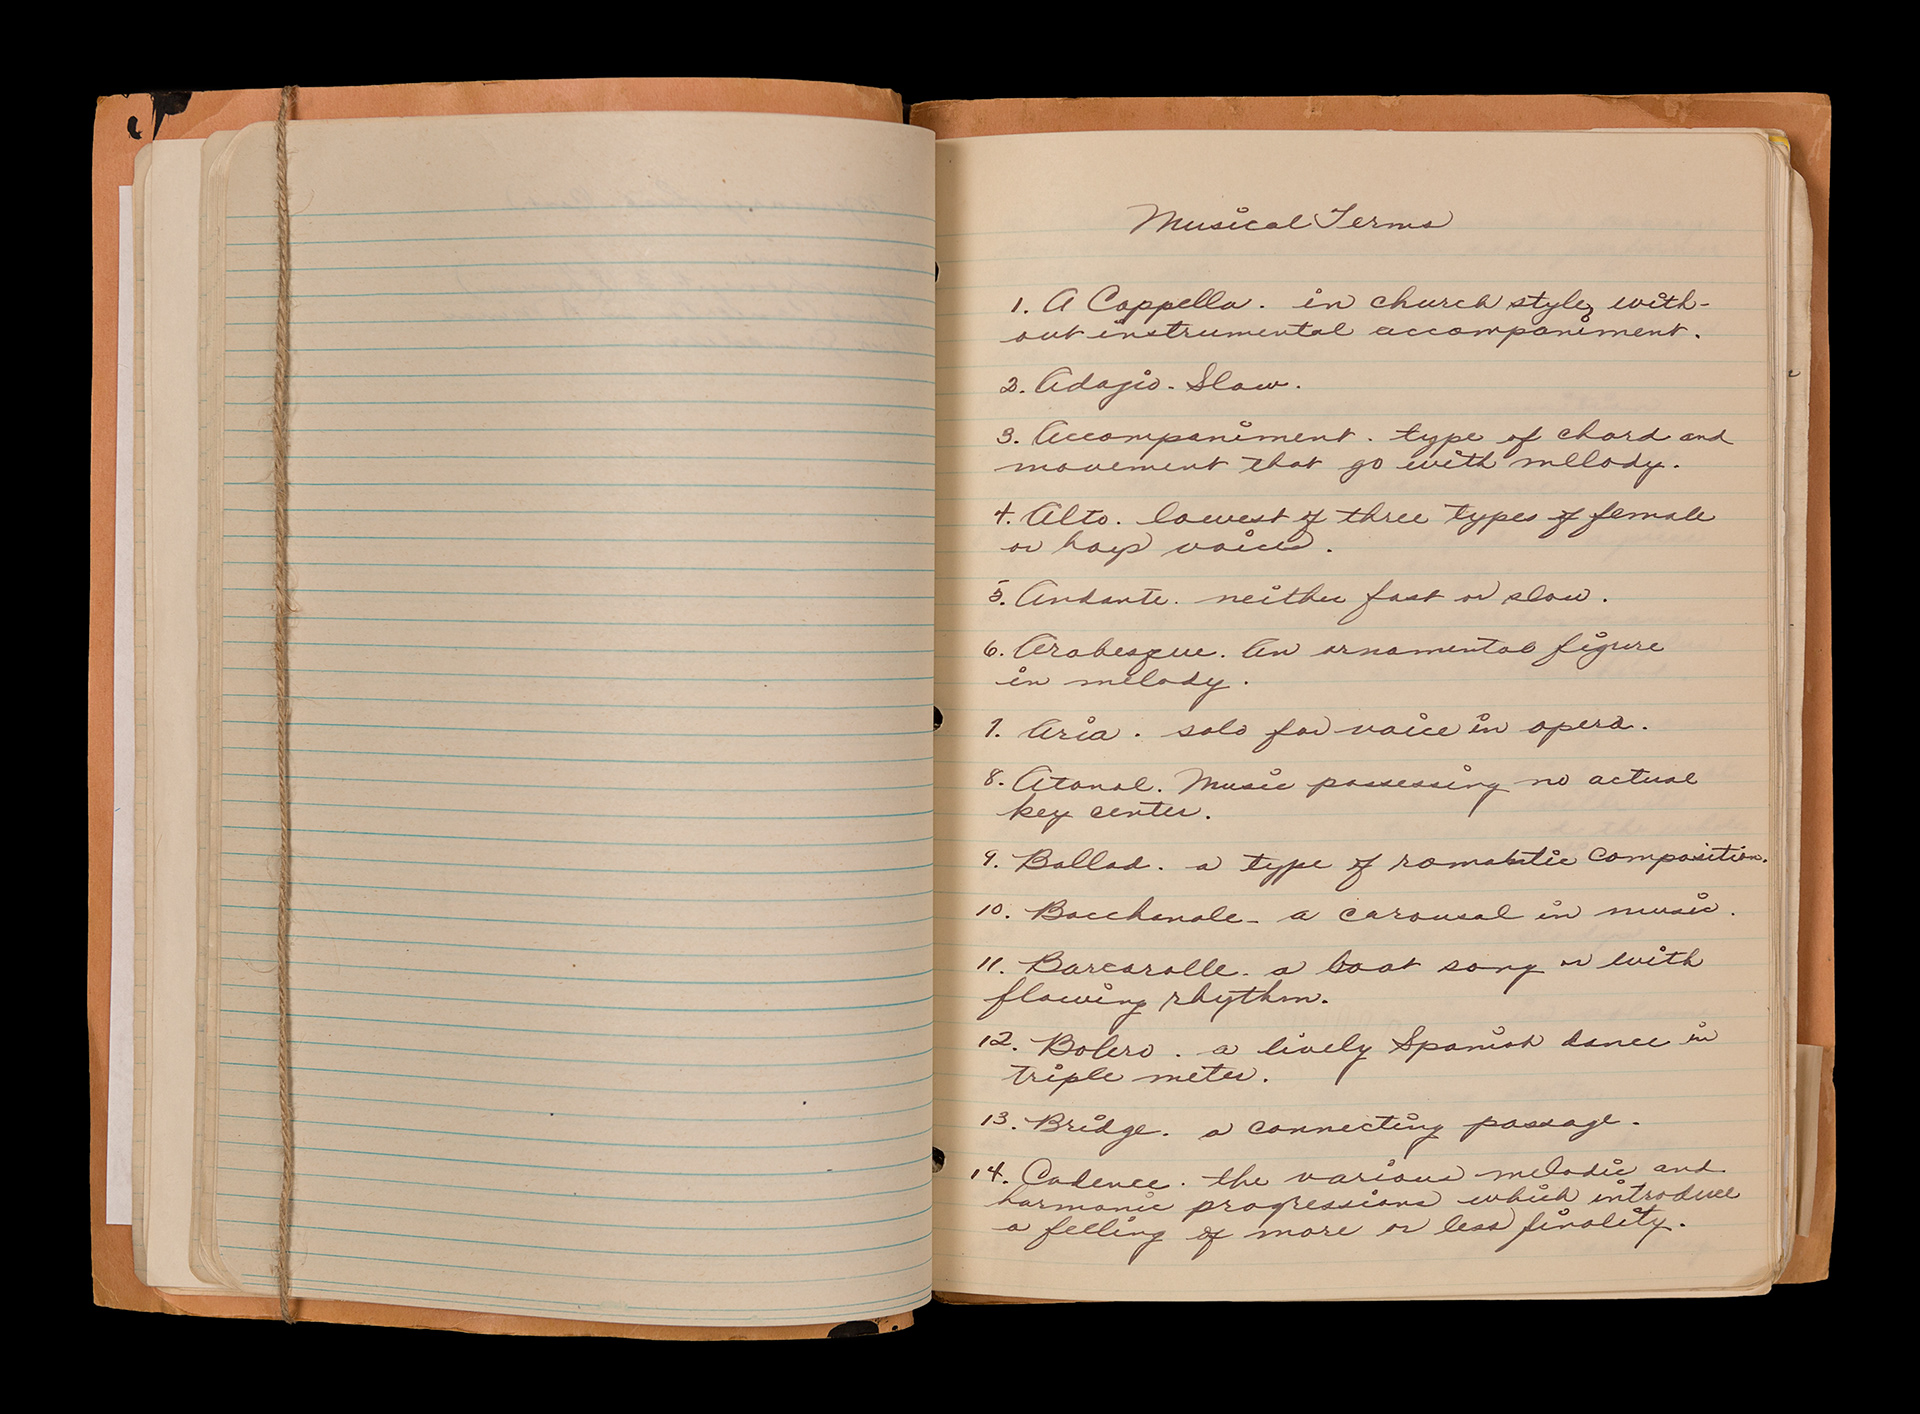 Musical Terms
1. A Cappella. in church style, with-
out instrumental accompaniment.
2. Adagio. Slow.
3. Accompaniment. type of chord and
movement that go with mellody.
4. Alto. lowest of three types of female
or boys voices.
5. Andante. neither fast or slow.
6. Arabesque. An ornamental figure
in melody.
7. Aria. solo for voice in opera.
8. Atonal. Music possessing no actual
key center.
9. Ballad. a type of romantic composition.
10. Bacchanale - a carousal in music.
11. Barcarolle - a boat song or with
flowing rhythm.
12. Bolero. a lively Spanish dance in
triple meter.
13. Bridge. a connecting passage.
14. Cadence. the various melodic and
harmonic progressions which introduce
a feeling of more or less finality.